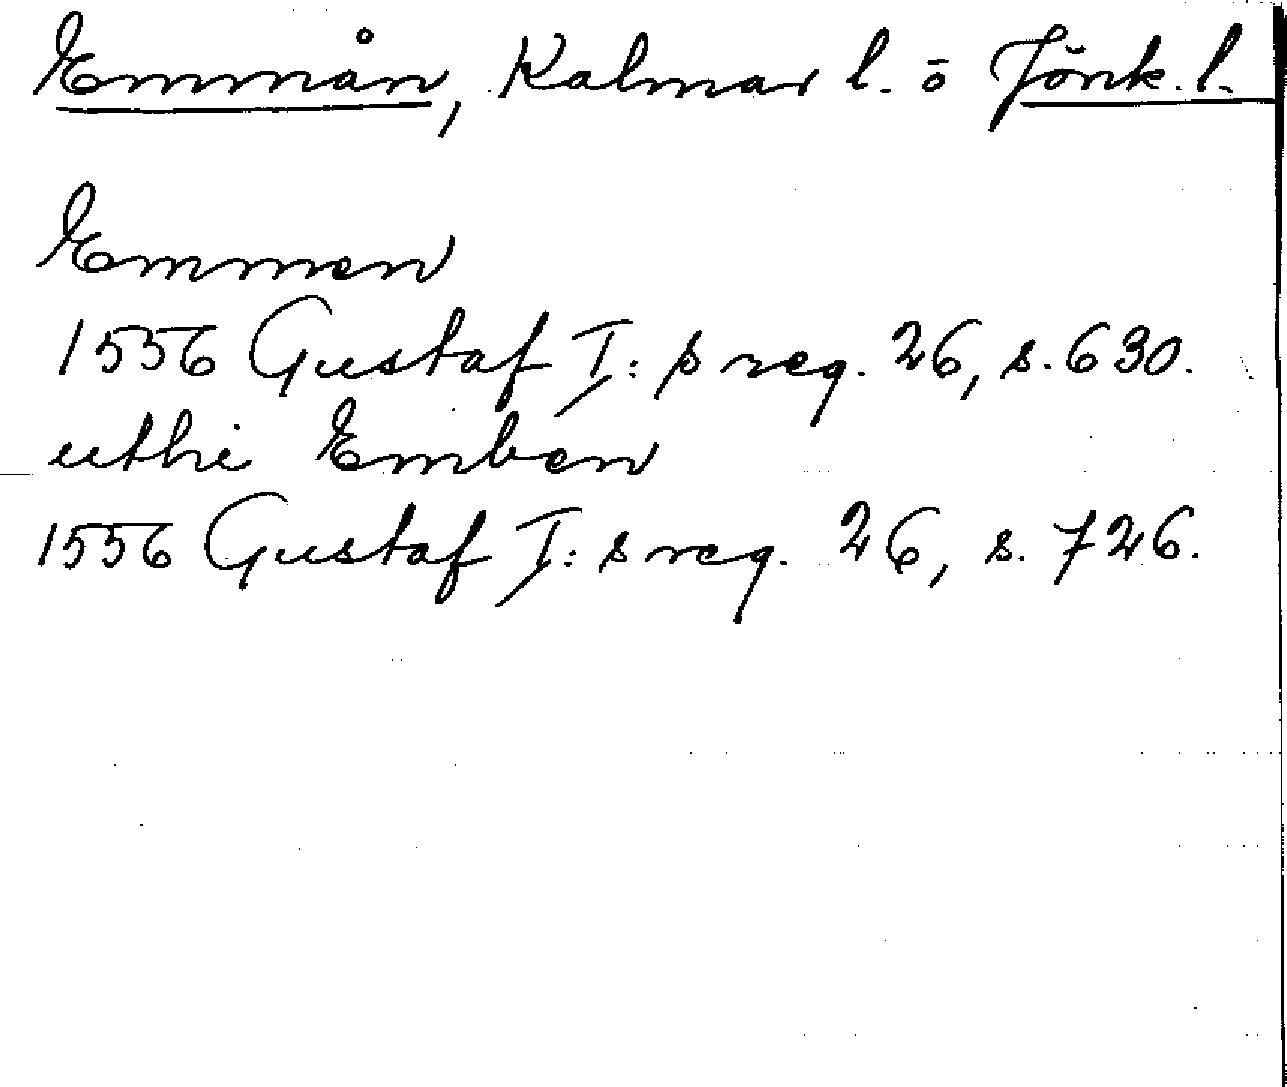 Emmån, Kalmar l. o Jönk. l.
Emmen
1556 Gustaf I:s reg. 26, s. 630.
uthi Emben
1556 Gustaf I:s reg. 26, s. 726.